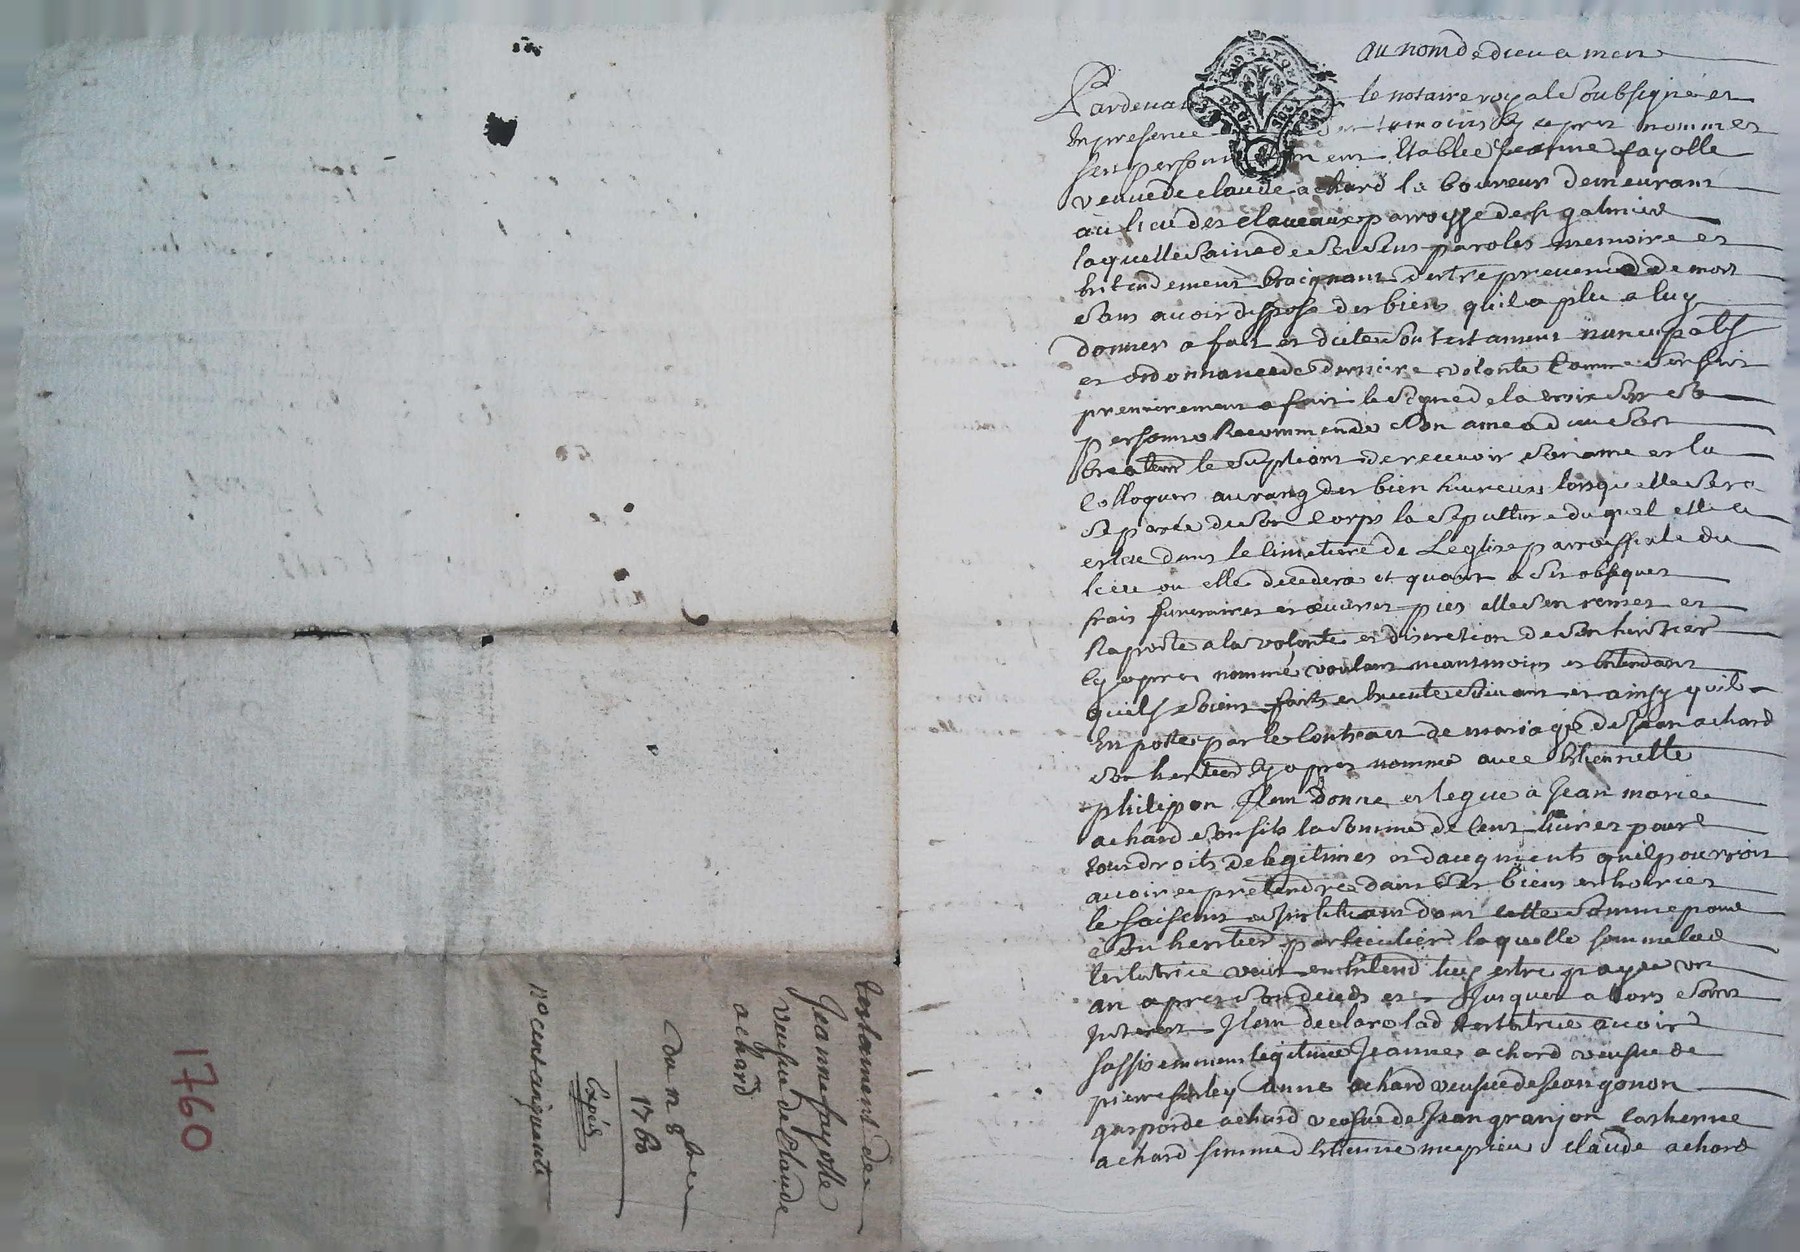 au nom de dieu amen
Pardevant le notaire royal soubsigné et
en presence des temoins cy apres nommes
fut personnellement establie Jeanne fayolle
veuve de claude achard laboureur demeurant
au lieu des claveaux parroisse de st galmier
laquelle saine de ses sens paroles memoire et
entendement craignant destre prevenue de mort
sans avoir dispose des biens quil a plu a luy
donner a fait et dicte son testament nuncupatif
et ordonnance de derniere volonte comme sensuit
premierement a fait le signe de la croix sur sa
personne Recommende son ame a dieu son
createur le supliant de recevoir son ame et la
colloquer au rang des bien heureux lorsquelle sera
separée de son corps la sepulture duquel elle a
eslue dans le cimetiere de Leglise parroissiale du
lieu ou elle decedera et quant a ses obseques
frais funeraires et œuvres pies elle sen remet et
Raporte a la volonte et discretion de son heritier
cy apres nommé voulant neantmoins et entendant
quils soient faits et executes suivant et ainsy quil
En porte par le contract de mariage de Jean achard
son heritier cy apres nomme avec Etiennette
philipon Item donne et legue à Jean marie
achard son fils la somme de cent livres pour
tous droits de legitimes et daugments quil pourroit
avoir et pretendre dans ses biens et hoiries
le faisant et Instituant dans cette somme pour
son heritier particulier laquelle somme lad
testatrice veut et entend luy estre payee un
an apres son deceds et Jusques alors sans
Interest Item declare lad testatrice avoir
suffisemment legitimé Jeanne achard veufve de
pierre ferley anne achard veufve de Jean gonon
gasparde achard veufve de Jean granjon Catherine
achard femme d Estienne mespieu claude achard
testament de
Jeanne fayolle
veufve de Claude
achard
du n 8bre
1760
Expéd
no cent cinquante
1760